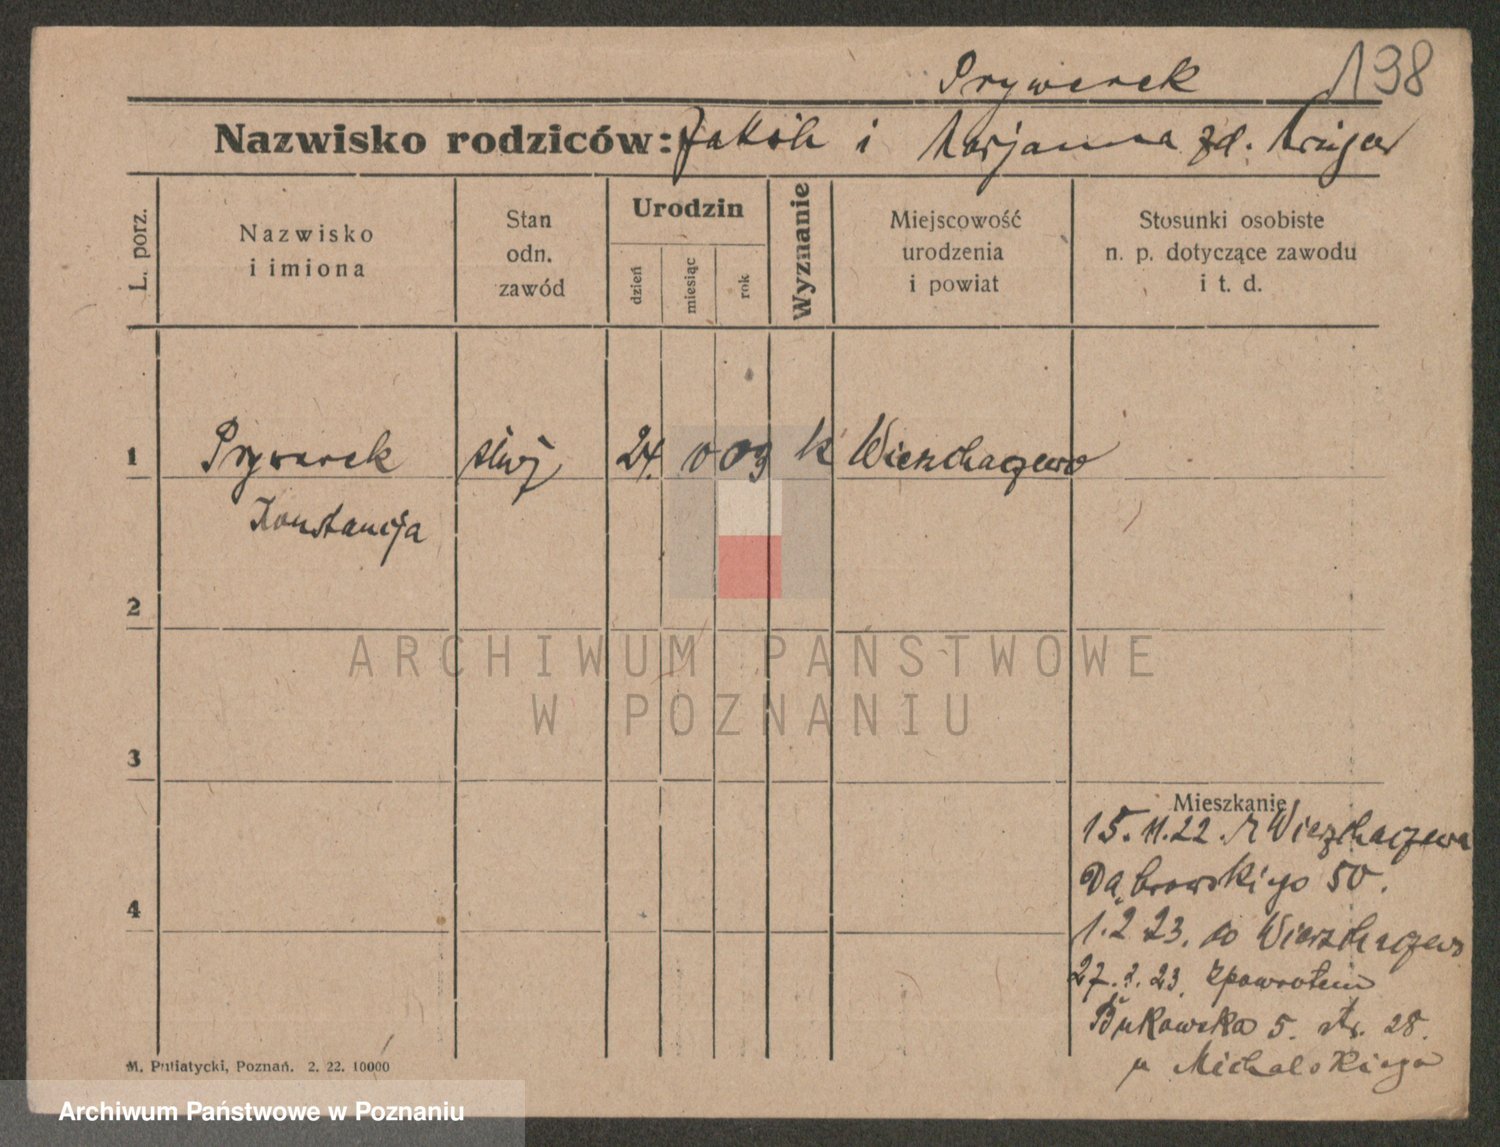 Prywerek 198
Nazwisko rodziców: Jakób i Marjanna zd. Krüger
L. porz.
Nazwisko i imiona
Stan odn. zawód
Urodzin
dzień
miesiąc
rok
Wyznanie
Miejscowość urodzenia i powiat
Stosunki osobiste n. p. dotyczące zawodu i t. d.
1 Prywerek służ 24. V 03 k Wierzchaczewo
Konstancja
2
ARCHIWUM PAŃSTWOWE
W POZNANIU
3
Mieszkanie
15. 11. 22. z Wierzchaczewa
Dąbrowskiego 50.
4
1. 2 23. do Wierzchaczewo
27. 2. 23. zpowrotem
Bukowska 5. str. 28.
u Michalskiego
M. Putiatycki, Poznań. 2. 22. 10000
Archiwum Państwowe w Poznaniu